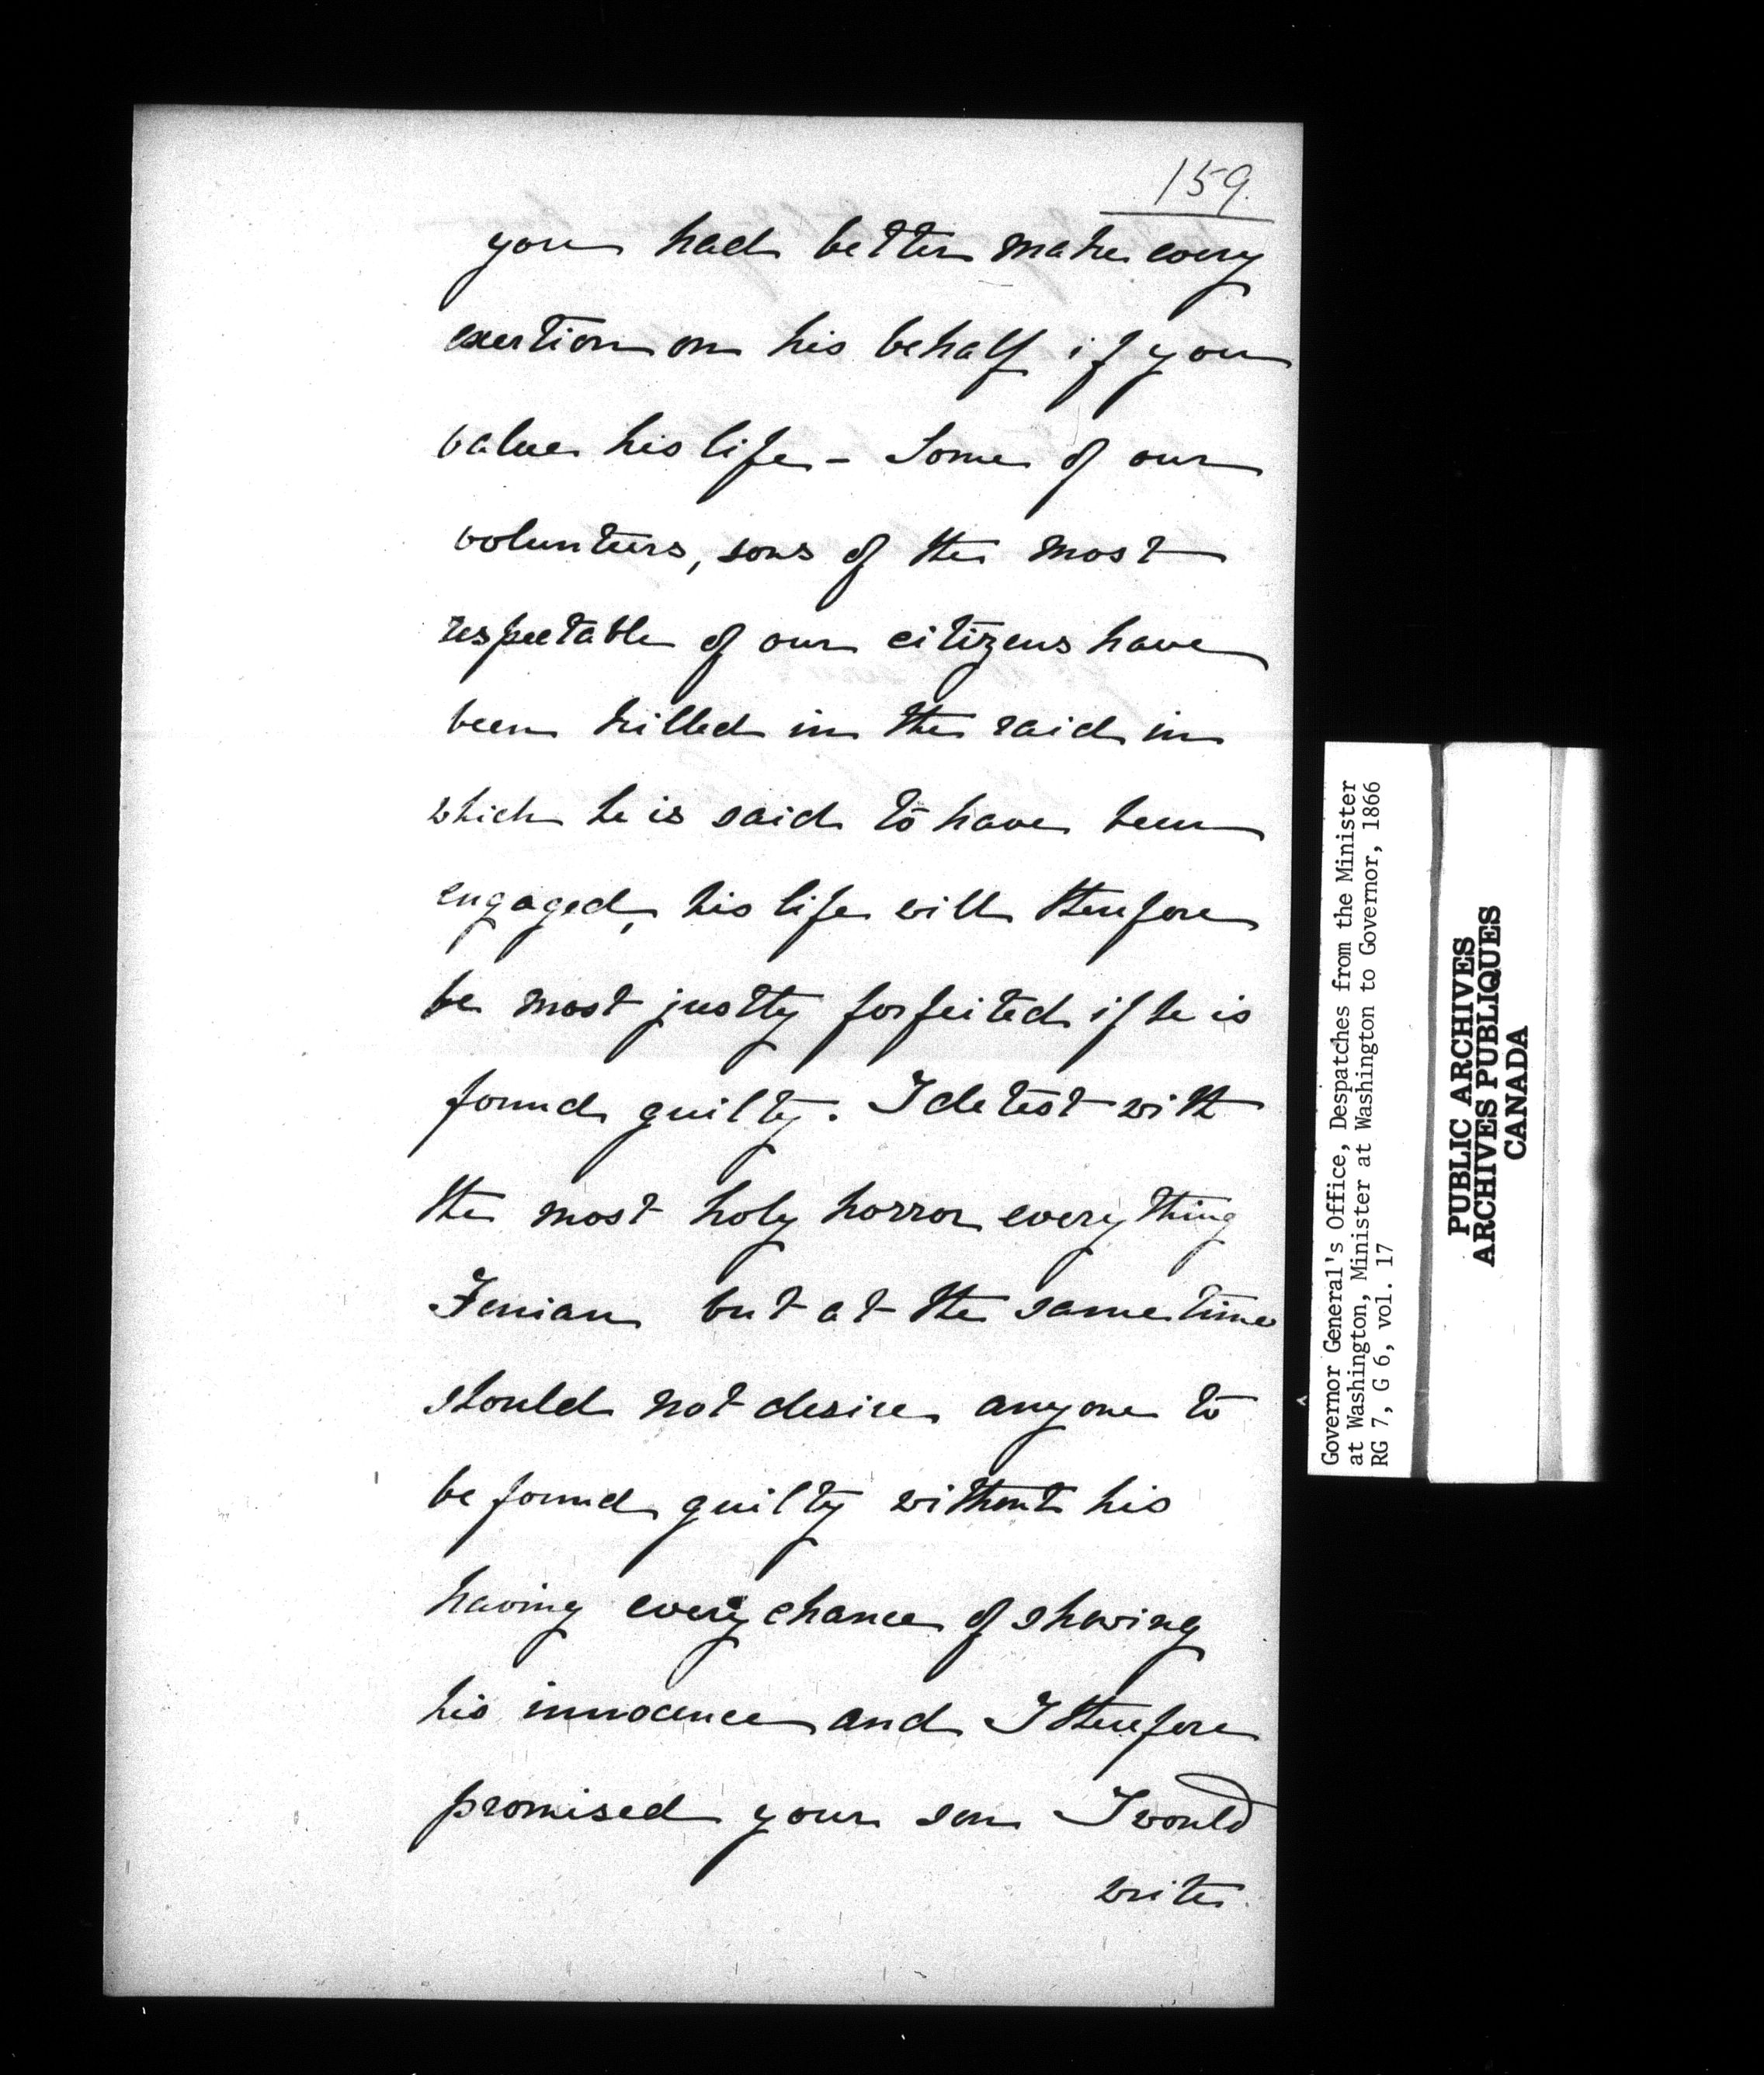 159.
you had better make every
exertion on his behalf if you
value his life - Some of our
volunteers, sons of the most
respectable of our citizens have
been killed in the raid in
which he is said to have been
engaged, his life will therefore
be most justly forfeited if he is
found guilty. I detest with
the most holy horror everything
Fenian but at the same time
should not desire anyone to
be found guilty without his
having every chance of shewing
his innocence and I therefore
promised your son I would
write
Governor General's Office, Despatches from the Minister
at Washington, Minister at Washington to Governor, 1866
RG 7, G 6, vol. 17
PUBLIC ARCHIVES
ARCHIVES PUBLIQUES
CANADA